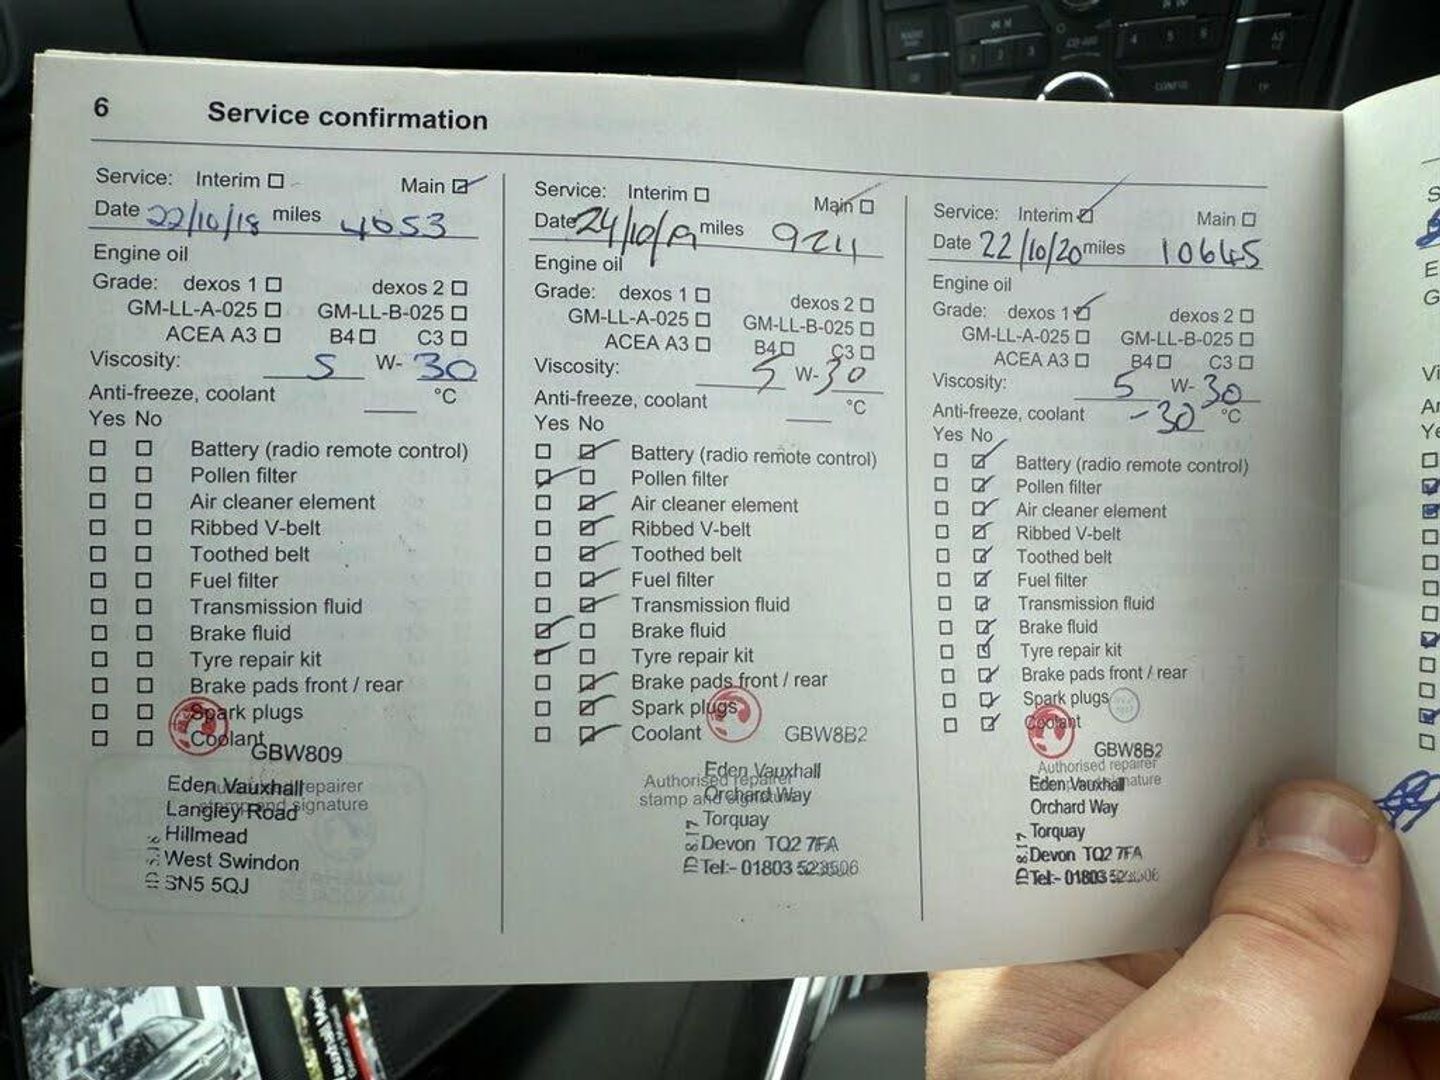 6 Service confirmation
Service: Interim Main
Date 22/10/18 miles 4053
Engine oil
Grade: dexos 1 dexos 2
GM-LL-A-025 GM-LL-B-025
ACEA A3 B4 C3
Viscosity: 5 W- 30
Anti-freeze, coolant °C
Yes No
Battery (radio remote control)
Pollen filter
Air cleaner element
Ribbed V-belt
Toothed belt
Fuel filter
Transmission fluid
Brake fluid
Tyre repair kit
Brake pads front / rear
Spark plugs
Coolant
GBW809
Authorised repairer
stamp and signature
Eden Vauxhall
Langley Road
Hillmead
West Swindon
SN5 5QJ
Service: Interim Main
Date 24/10/19 miles 9211
Engine oil
Grade: dexos 1 dexos 2
GM-LL-A-025 GM-LL-B-025
ACEA A3 B4 C3
Viscosity: 5 W- 30
Anti-freeze, coolant °C
Yes No
Battery (radio remote control)
Pollen filter
Air cleaner element
Ribbed V-belt
Toothed belt
Fuel filter
Transmission fluid
Brake fluid
Tyre repair kit
Brake pads front / rear
Spark plugs
Coolant
GBW8B2
Authorised repairer
stamp and signature
Eden Vauxhall
Orchard Way
Torquay
Devon TQ2 7FA
Tel:- 01803 523506
Service: Interim Main
Date 22/10/20 miles 10645
Engine oil
Grade: dexos 1 dexos 2
GM-LL-A-025 GM-LL-B-025
ACEA A3 B4 C3
Viscosity: 5 W- 30
Anti-freeze, coolant -30 °C
Yes No
Battery (radio remote control)
Pollen filter
Air cleaner element
Ribbed V-belt
Toothed belt
Fuel filter
Transmission fluid
Brake fluid
Tyre repair kit
Brake pads front / rear
Spark plugs
Coolant
GBW8B2
Authorised repairer
stamp and signature
Eden Vauxhall
Orchard Way
Torquay
Devon TQ2 7FA
Tel:- 01803